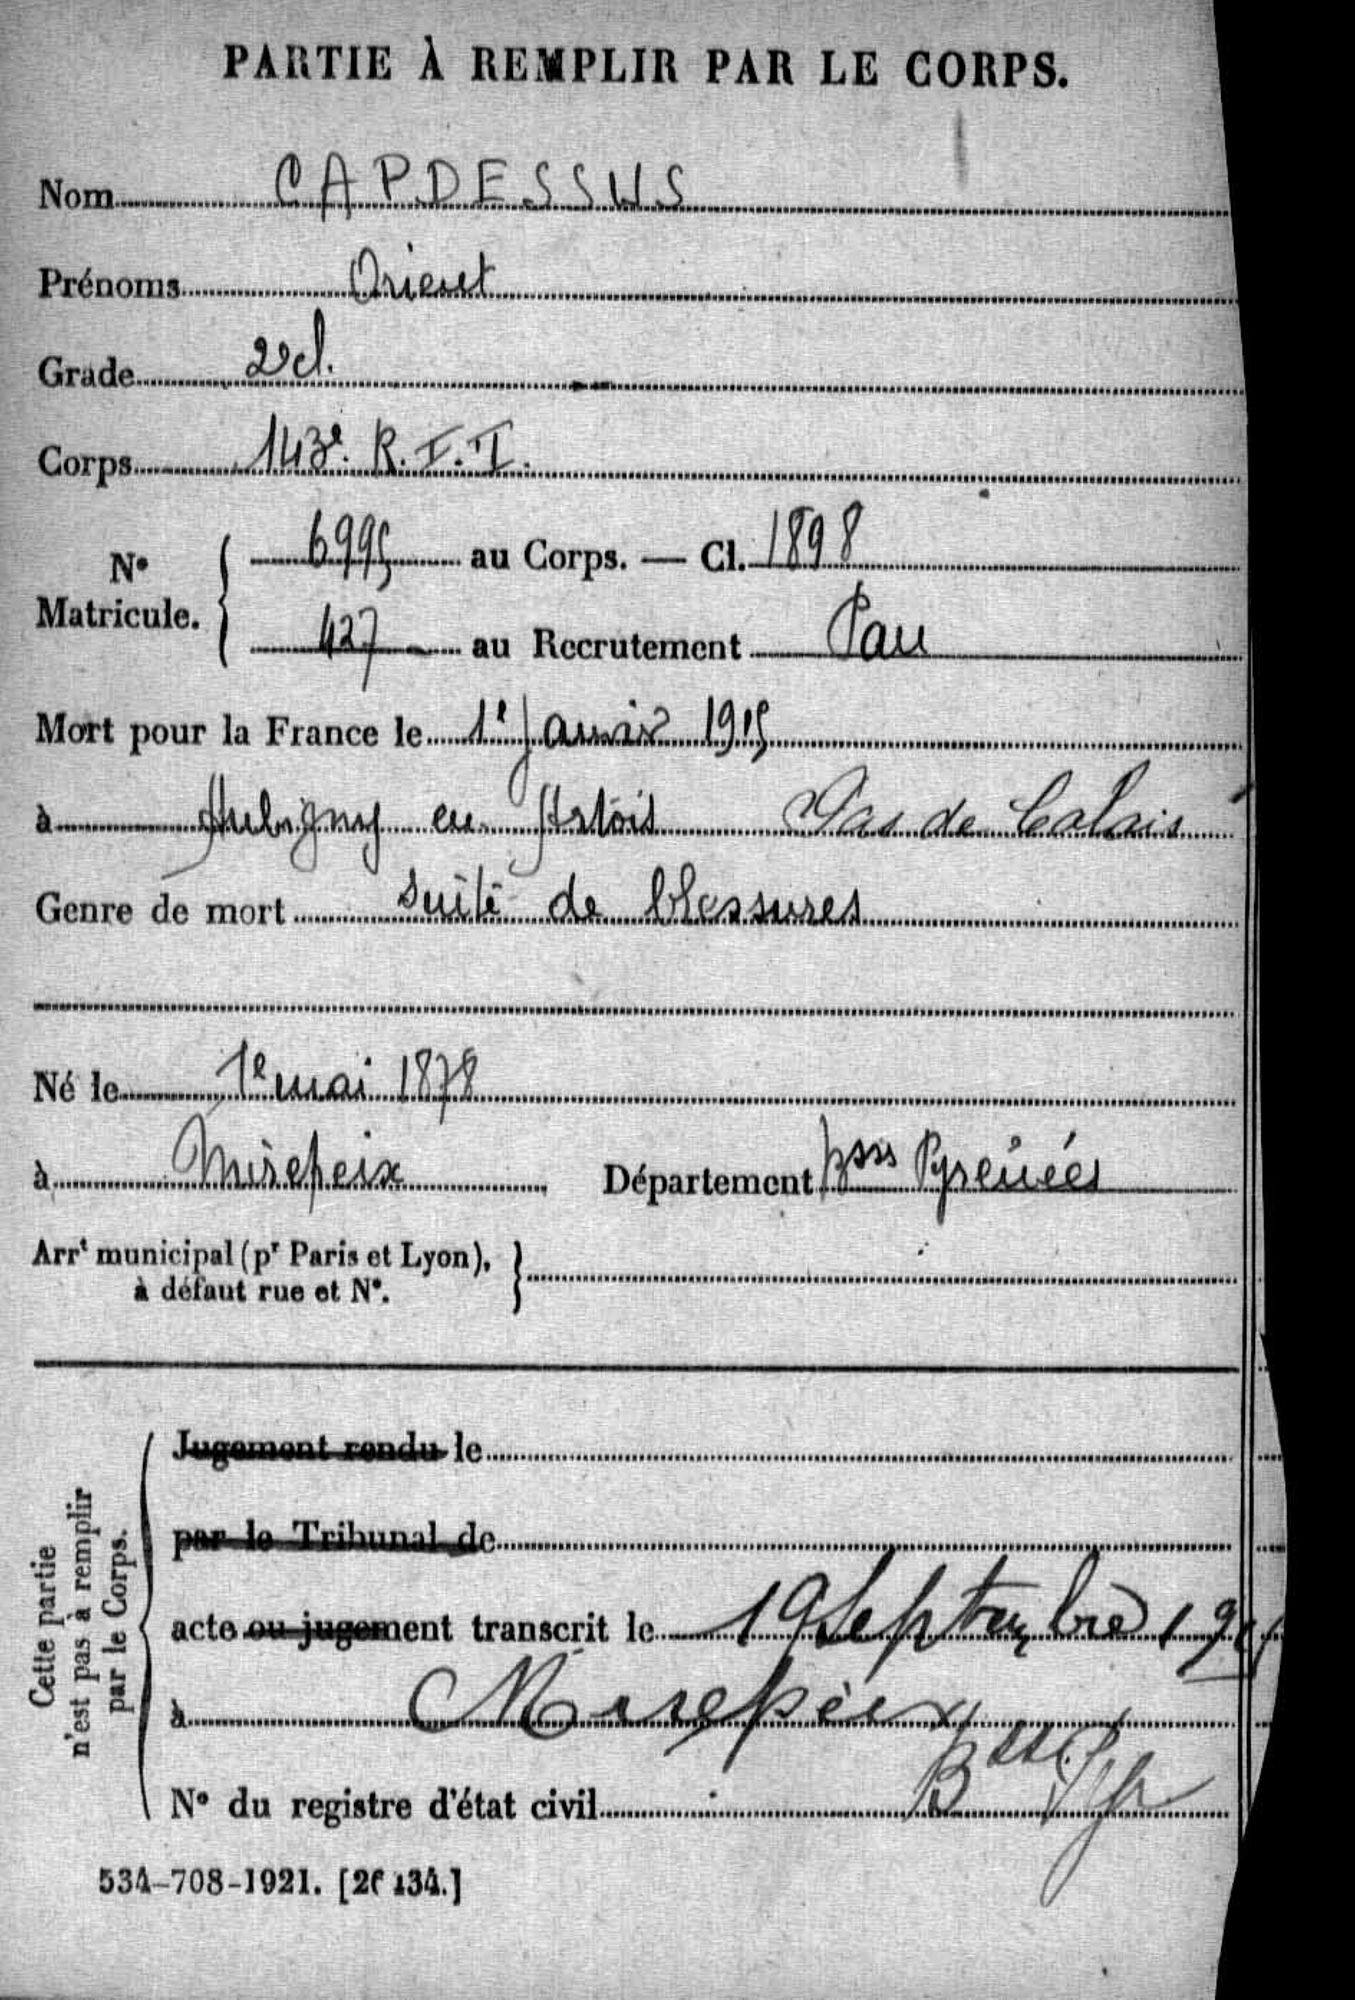 PARTIE À REMPLIR PAR LE CORPS.
Nom CAPDESSUS
Prénoms Orient
Grade 2e cl.
Corps 143e. R. I. T.
N° Matricule. { 6995 au Corps. — Cl. 1898
427 au Recrutement Pau
Mort pour la France le 1e Janvier 1915
à Aubigny en Artois Pas de Calais
Genre de mort suite de blessures
Né le 1e mai 1878
à Mirepeix Département Bsses Pyrénées
Arrt municipal (pr Paris et Lyon), à défaut rue et N°. }
Cette partie n'est pas à remplir par le Corps.
Jugement rendu le
par le Tribunal de
acte ou jugement transcrit le 19 Septembre
à Mirepeix
Bsses Pyr
N° du registre d'état civil
534-708-1921. [26134.]